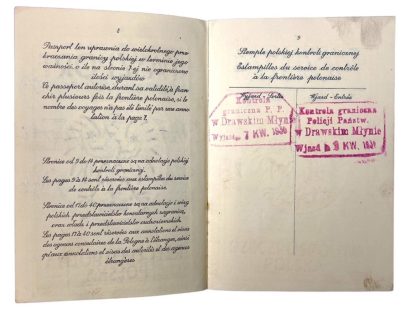 2
Paszport ten uprawnia do wielokrotnego prze-
kraczania granicy polskiej w terminie jego
ważności, o ile na stronie 7 ej nie ograniczono
ilości wyjazdów
Ce passeport autorise, durant sa validité, à fran-
chir plusieurs fois la frontière polonaise, si le
nombre des voyages n'est pas limité par une anno-
tation à la page 7.
Stronice od 9 do 14 przeznaczone są na adnotacje polskiej
kontroli granicznej.
Les pages 9 à 14 sont réservées aux estampilles du service
de contrôle à la frontière polonaise.
Stronice od 17 do 40 przeznaczone są na adnotacje i wizy
polskich przedstawicielstw konsularnych zagranicą,
oraz władz i przedstawicielstw cudzoziemskich.
Les pages 17 à 40 sont réservées aux annotations et visas
des agences consulaires de la Pologne à l'étranger, ainsi
qu'aux annotations et visas des autorités et des agences
étrangères
9
Stemple polskiej kontroli granicznej
Estampilles du service de contrôle
à la frontière polonaise
Wyjazd - Sortie
Kontrola
graniczna P. P.
w Drawskim Młynie
Wyjazd 7 KW. 1936
Wjazd - Entrée
Kontrola graniczna
Policji Państw.
w Drawskim Młynie
Wjazd 9 KW.